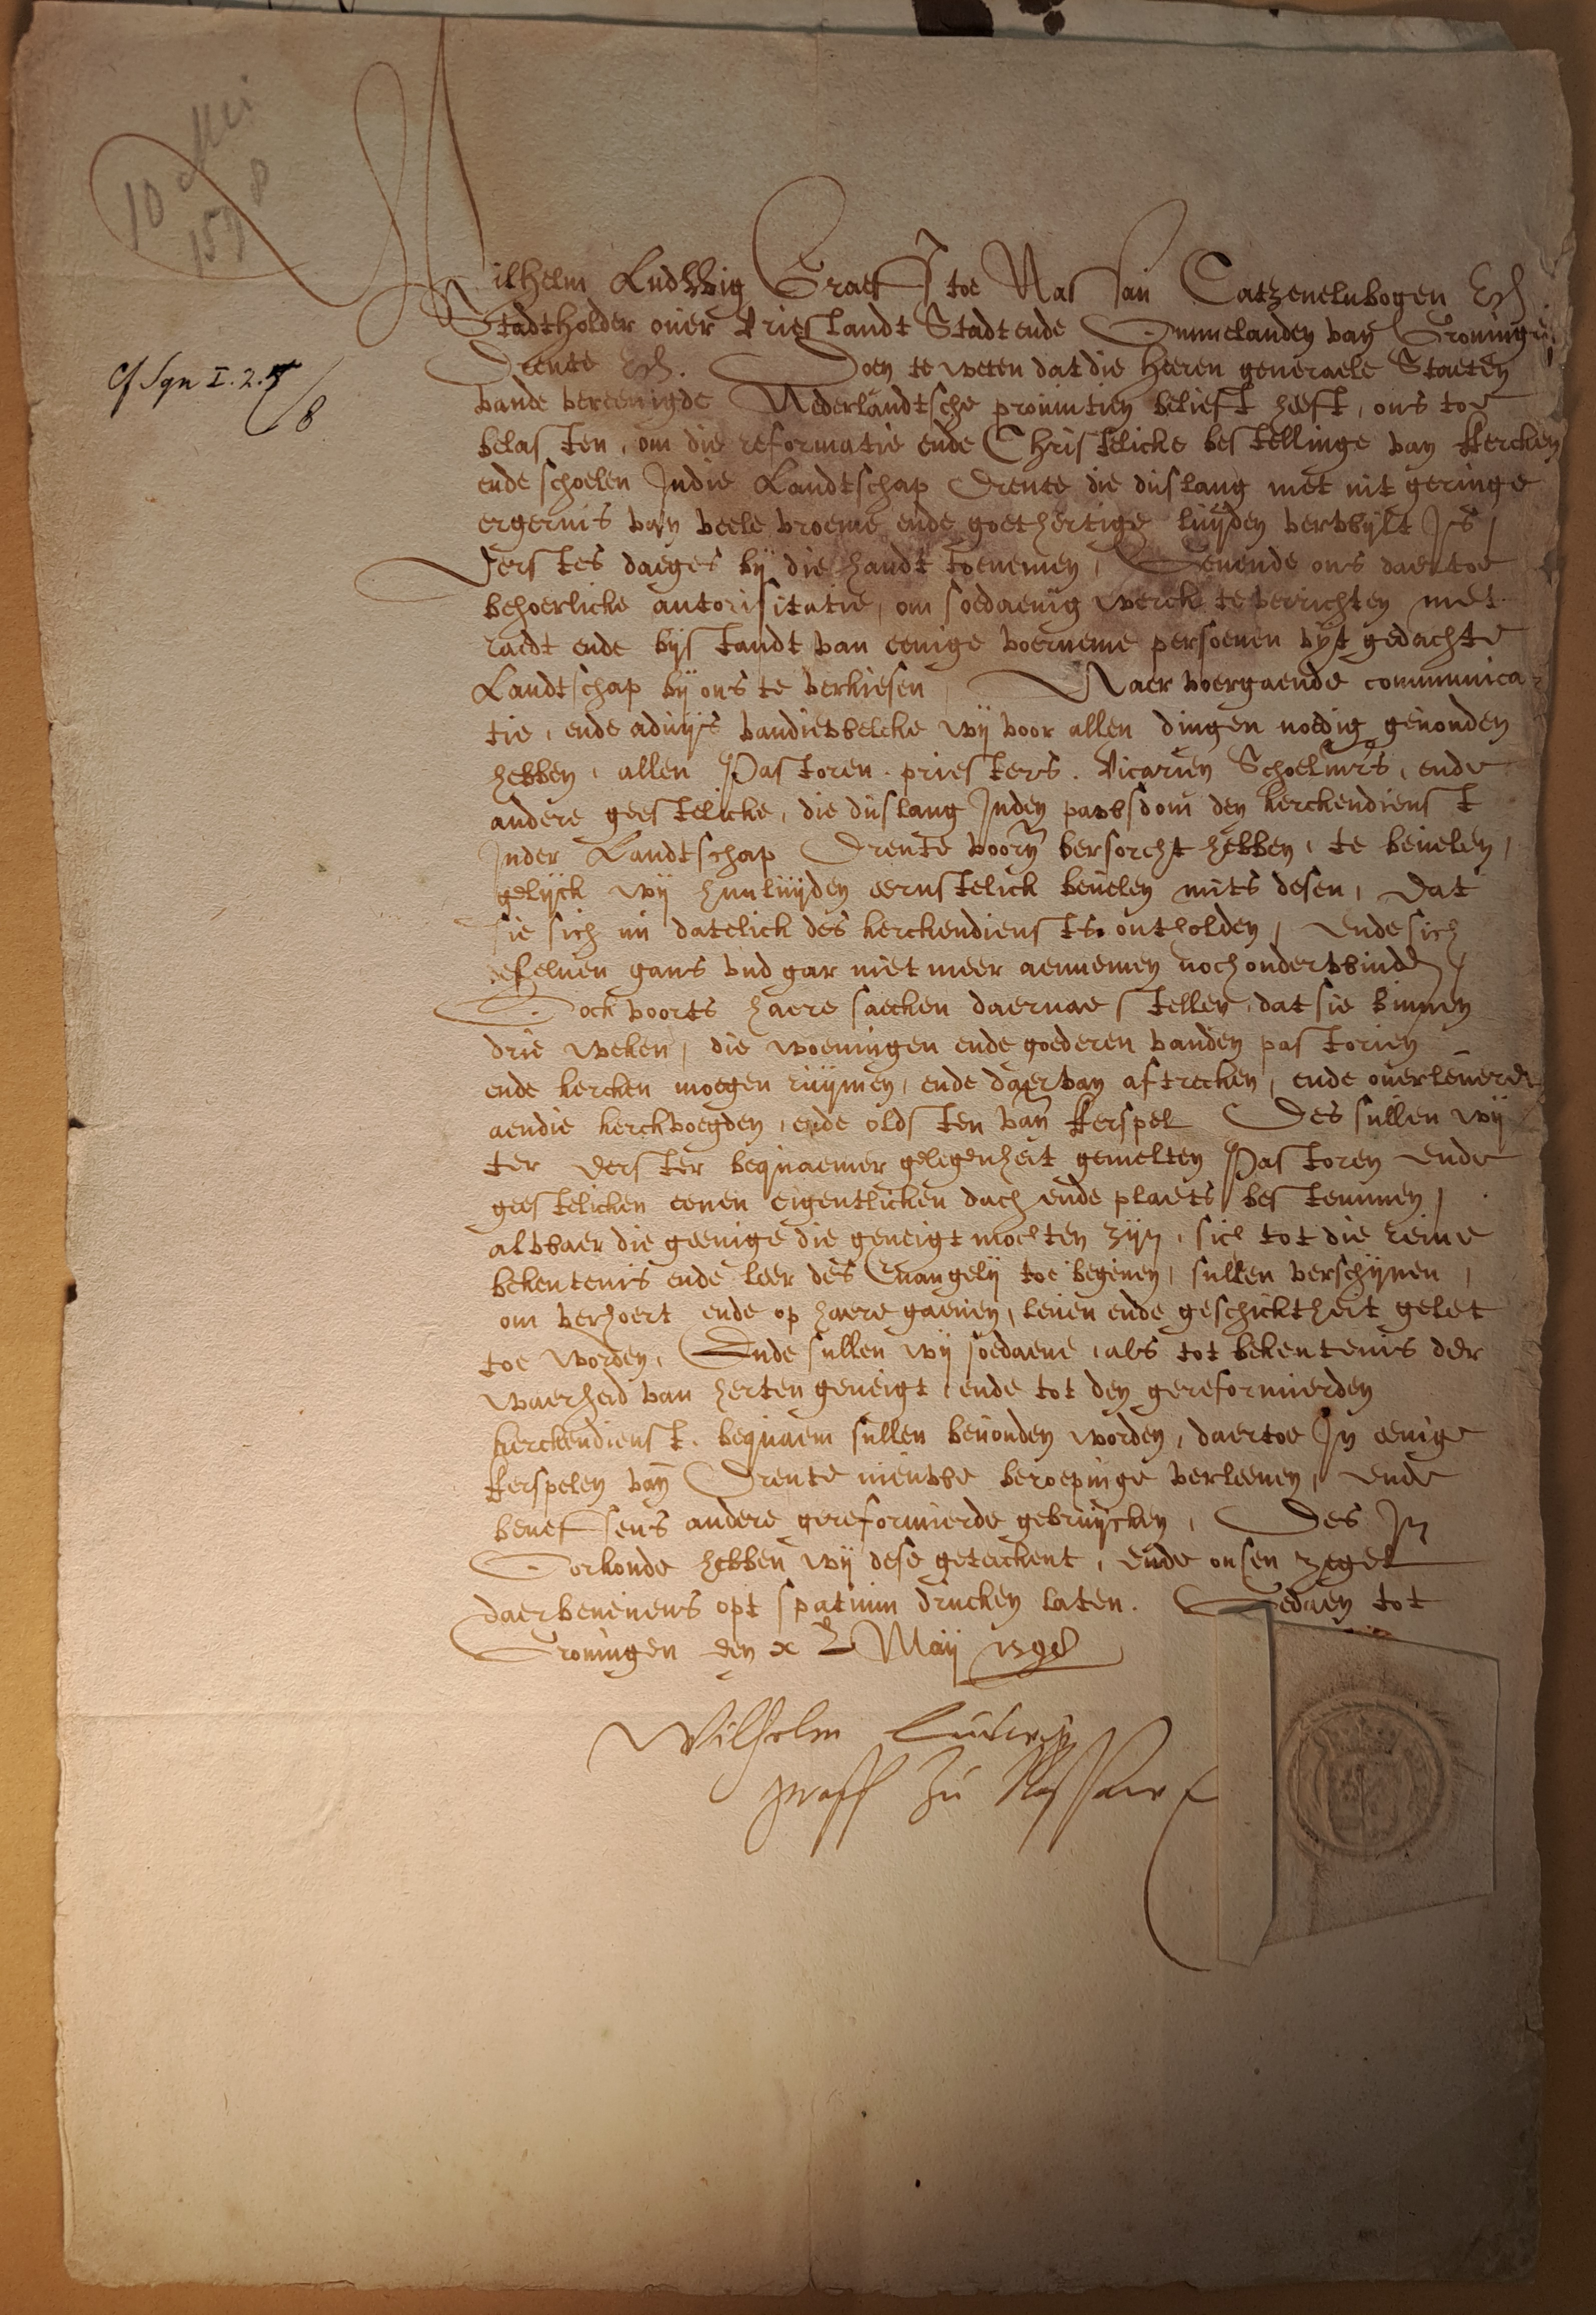 10 Mei
1598
Cf Syn I. 2. 7/8
Wilhelm Ludwig Graeff toe Nassau Catzenelnbogen Etc.
Stadtholder ouer Vrieslandt Stadt ende Ommelanden van Groningen
Drente Etc. Doen te weten dat die Heeren generaele Staeten
vande vereenigde Nederlandtsche prouintien belieft heeft, ons toe
belasten, om die reformatie ende Christelicke bestellinge van kercken
ende schoelen Indie Landtschap Drente die duslang met nit geringe
ergernis van veele vroeme ende goethertige luijden verwylt Is,
Eerstes daeges bij die handt toenemen, Geuende ons daertoe
behoerlicke autorisitatie, om soedaenig werck te verrichten met
raedt ende bijstandt van eenige voerneme persoenen uyt gedachte
Landtschap bij ons te verkiesen, Naer voergaende communica-
tie, ende aduijs vandiewelcke wij voor allen dingen noedig geuonden
hebben, allen Pastoren, priesters, Vicarien Schoelmrs, ende
andere geestelicke, die duslang Inden pawsdom den kerckendienst
Inder Landtschap Drente voorn versorcht hebben, te beuelen,
gelijck wij hunluijden eernstelick beuelen mits desen, Dat
sie sich nu datelick des kerckendiensts ontholden, ende sich
deseluen gans und gar niet meer aennemen noch onderwinden,
Oock voorts haere saecken daernae stellen, dat sie binnen
drie weken, die woeningen ende goederen vanden pastorien
ende kercken moegen ruijmen, ende daervan aftrecken, ende ouerleueren
aendie kerckvoegden, ende oldsten van kerspel Des sullen wij
ter eerster bequaemer gelegenheit gemelten Pastoren ende
geestelicken eenen eigentlicken dach ende plaets bestemmen,
alwaer die geenige die geneigt mochten zijn, sich tot die reine
bekentenis ende leer des Euangelij toe begeuen, sullen verschijnen,
om verhoert ende op haere gaeuen, leuen ende geschicktheit gelet
toe worden, Ende sullen wij soedaene, als tot bekentenis der
waerheid van herten geneigt, ende tot den gereformierden
kerckendienst, bequaem sullen beuonden worden, daertoe In eenige
kerspelen van Drente nieuwe beroepinge verleenen, ende
beneffens andere gereformierde gebruijcken, Des In
Oorkonde hebben wij dese geteickent, ende onsen zegel
daerbeneuens opt spatium drucken laten. Gedaen tot
Groningen den x Maij 1598
Wilhelm Ludwig
graff zu Nassaw